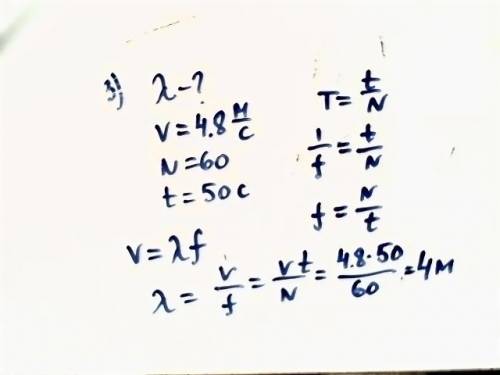 3) λ-?
v=4.8 м/с
N=60
t=50с
T= t/N
1/f = t/N
f= N/t
v=λf
λ= v/f = vt/N = 4.8·50/60 =4м